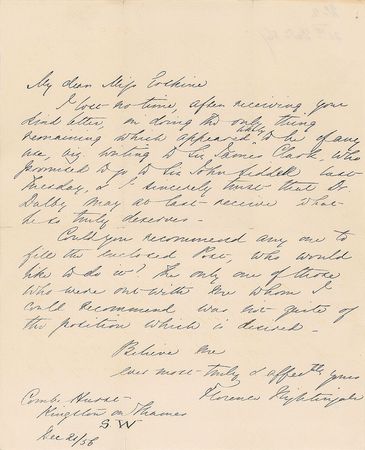 My dear Miss Erskine
I lose no time, after receiving your
kind letter, in doing the only thing
remaining which appeared likely to be of any
use, viz writing to Sir James Clark, who
promised to go to Sir John Liddell last
Tuesday, & I sincerely trust that Dr
Dalby may at last receive what
he so truly deserves -
Could you recommend any one to
fill the enclosed Post, who would
like to do it? The only one of those
who were out with me whom I
could recommend was not quite of
the position which is desired -
Believe me
ever most truly & affectly yours
Florence Nightingale
Combe Hurst -
Kingston on Thames
S W
Dec 21/56